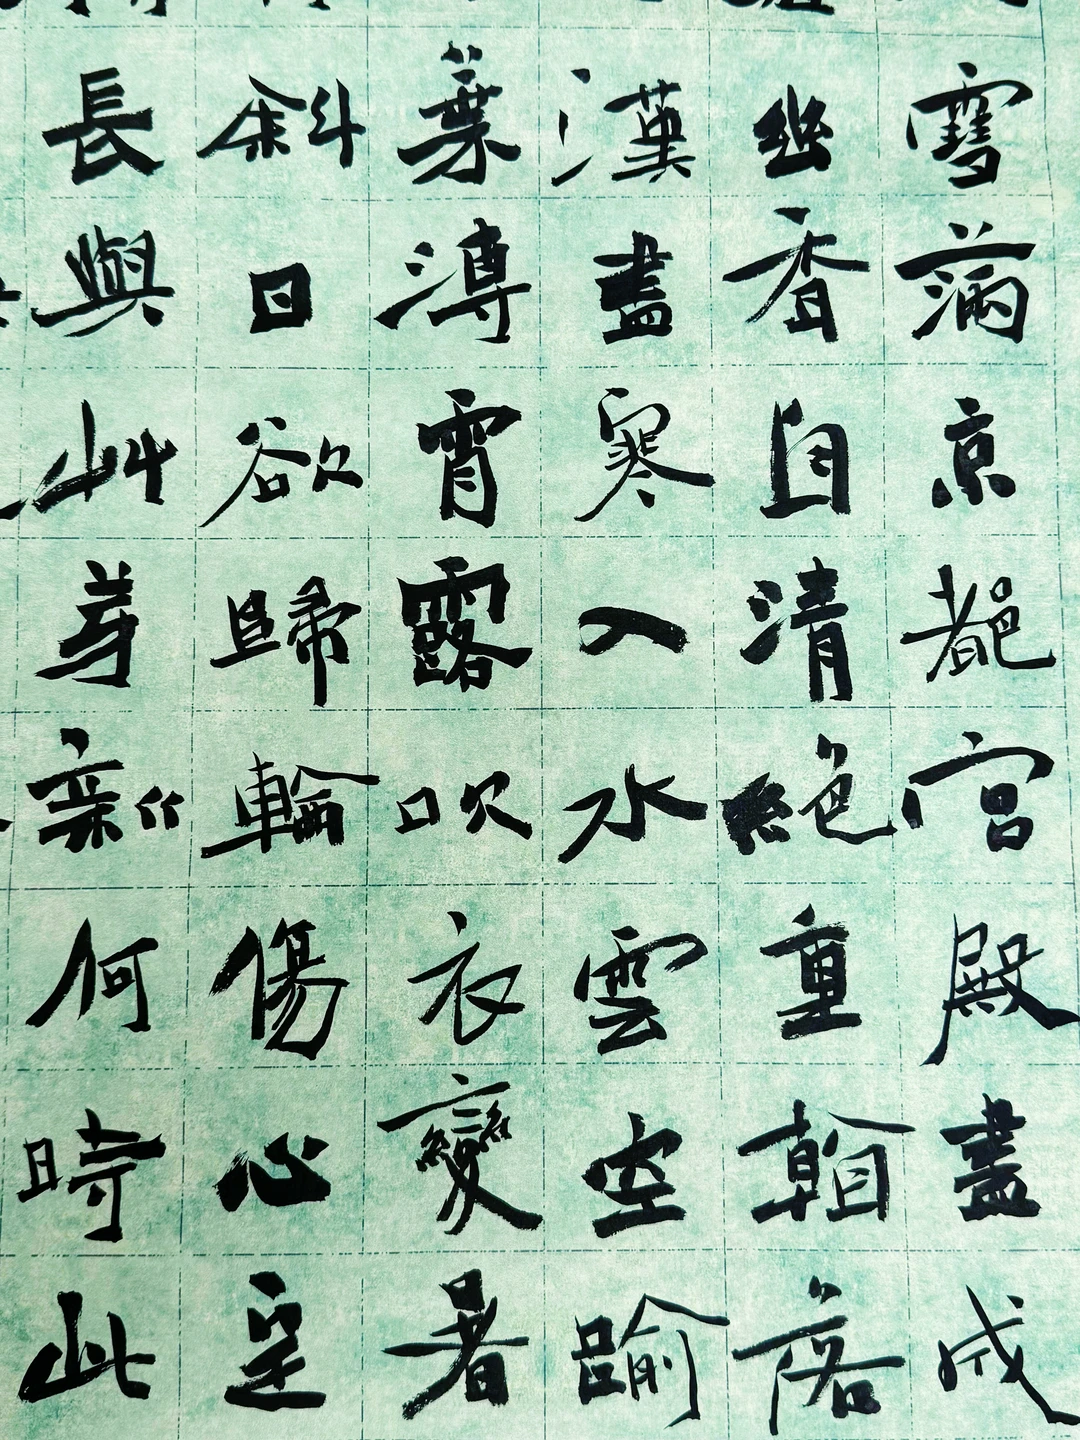 雪滿京都宮殿盡成
幽香自清絕重落
漢盡寒入水雲空踰
葉漙宵露吹衣變暑
斜日欲歸輪傷心足
長與艸芽新何時此